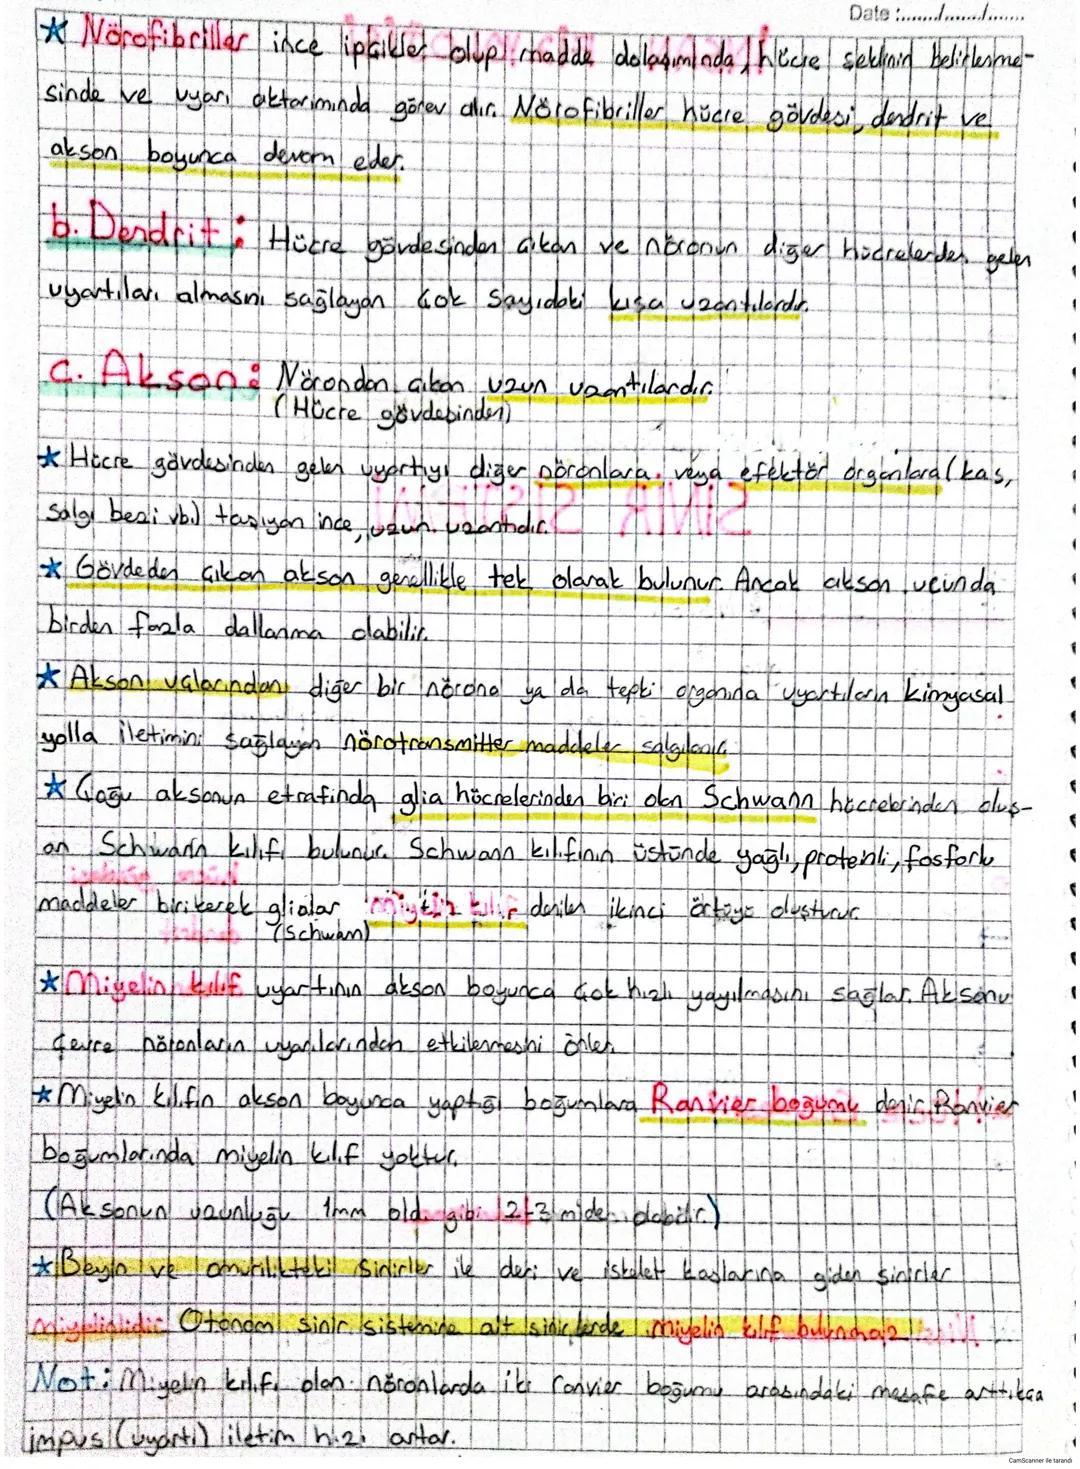 Date :......../......../........
★ Nörofibriller ince iplikler olup madde dolaşımında, hücre şeklinin belirlenme-
sinde ve uyarı aktarımında görev alır. Nörofibriller hücre gövdesi, dendrit ve
akson boyunca devam eder.
b. Dendrit: Hücre gövdesinden çıkan ve nöronun diğer hücrelerden gelen
uyartıları almasını sağlayan çok sayıdaki kısa uzantılardır.
c. Akson: Nörondan çıkan uzun uzantılardır.
(Hücre gövdesinden)
★ Hücre gövdesinden gelen uyartıyı diğer nöronlara veya efektör organlara (kas,
salgı bezi vb.) taşıyan ince, uzun uzantıdır.
★ Gövdeden çıkan akson genellikle tek olarak bulunur. Ancak akson ucunda
birden fazla dallanma olabilir.
★ Akson uçlarından diğer bir nörona ya da tepki organına uyartıların kimyasal
yolla iletimini sağlayan nörotransmitter maddeler salgılanır.
★ Çoğu aksonun etrafında glia hücrelerinden biri olan Schwann hücrelerinden oluş-
an Schwann kılıfı bulunur. Schwann kılıfının üstünde yağlı, proteinli, fosforlu
maddeler birikerek glialar miyelin kılıf denilen ikinci örtüyü oluşturur.
(Schwan)
★ Miyelin kılıf uyartının akson boyunca çok hızlı yayılmasını sağlar. Aksonu
çevre nöronların uyarılarından etkilenmesini önler.
★ Miyelin kılıfın akson boyunca yaptığı boğumlara Ranvier boğumu denir. Ranvier
boğumlarında miyelin kılıf yoktur.
(Aksonun uzunluğu 1mm old. gibi 2-3 m'den olabilir.)
★ Beyin ve omurilikteki sinirler ile deri ve iskelet kaslarına giden sinirler
miyelinlidir. Otonom sinir sistemine ait sinirlerde miyelin kılıf bulunmaz!
Not: Miyelin kılıfı olan nöronlarda iki ranvier boğumu arasındaki mesafe arttıkça
impus (uyartı) iletim hızı artar.
CamScanner ile tarandı